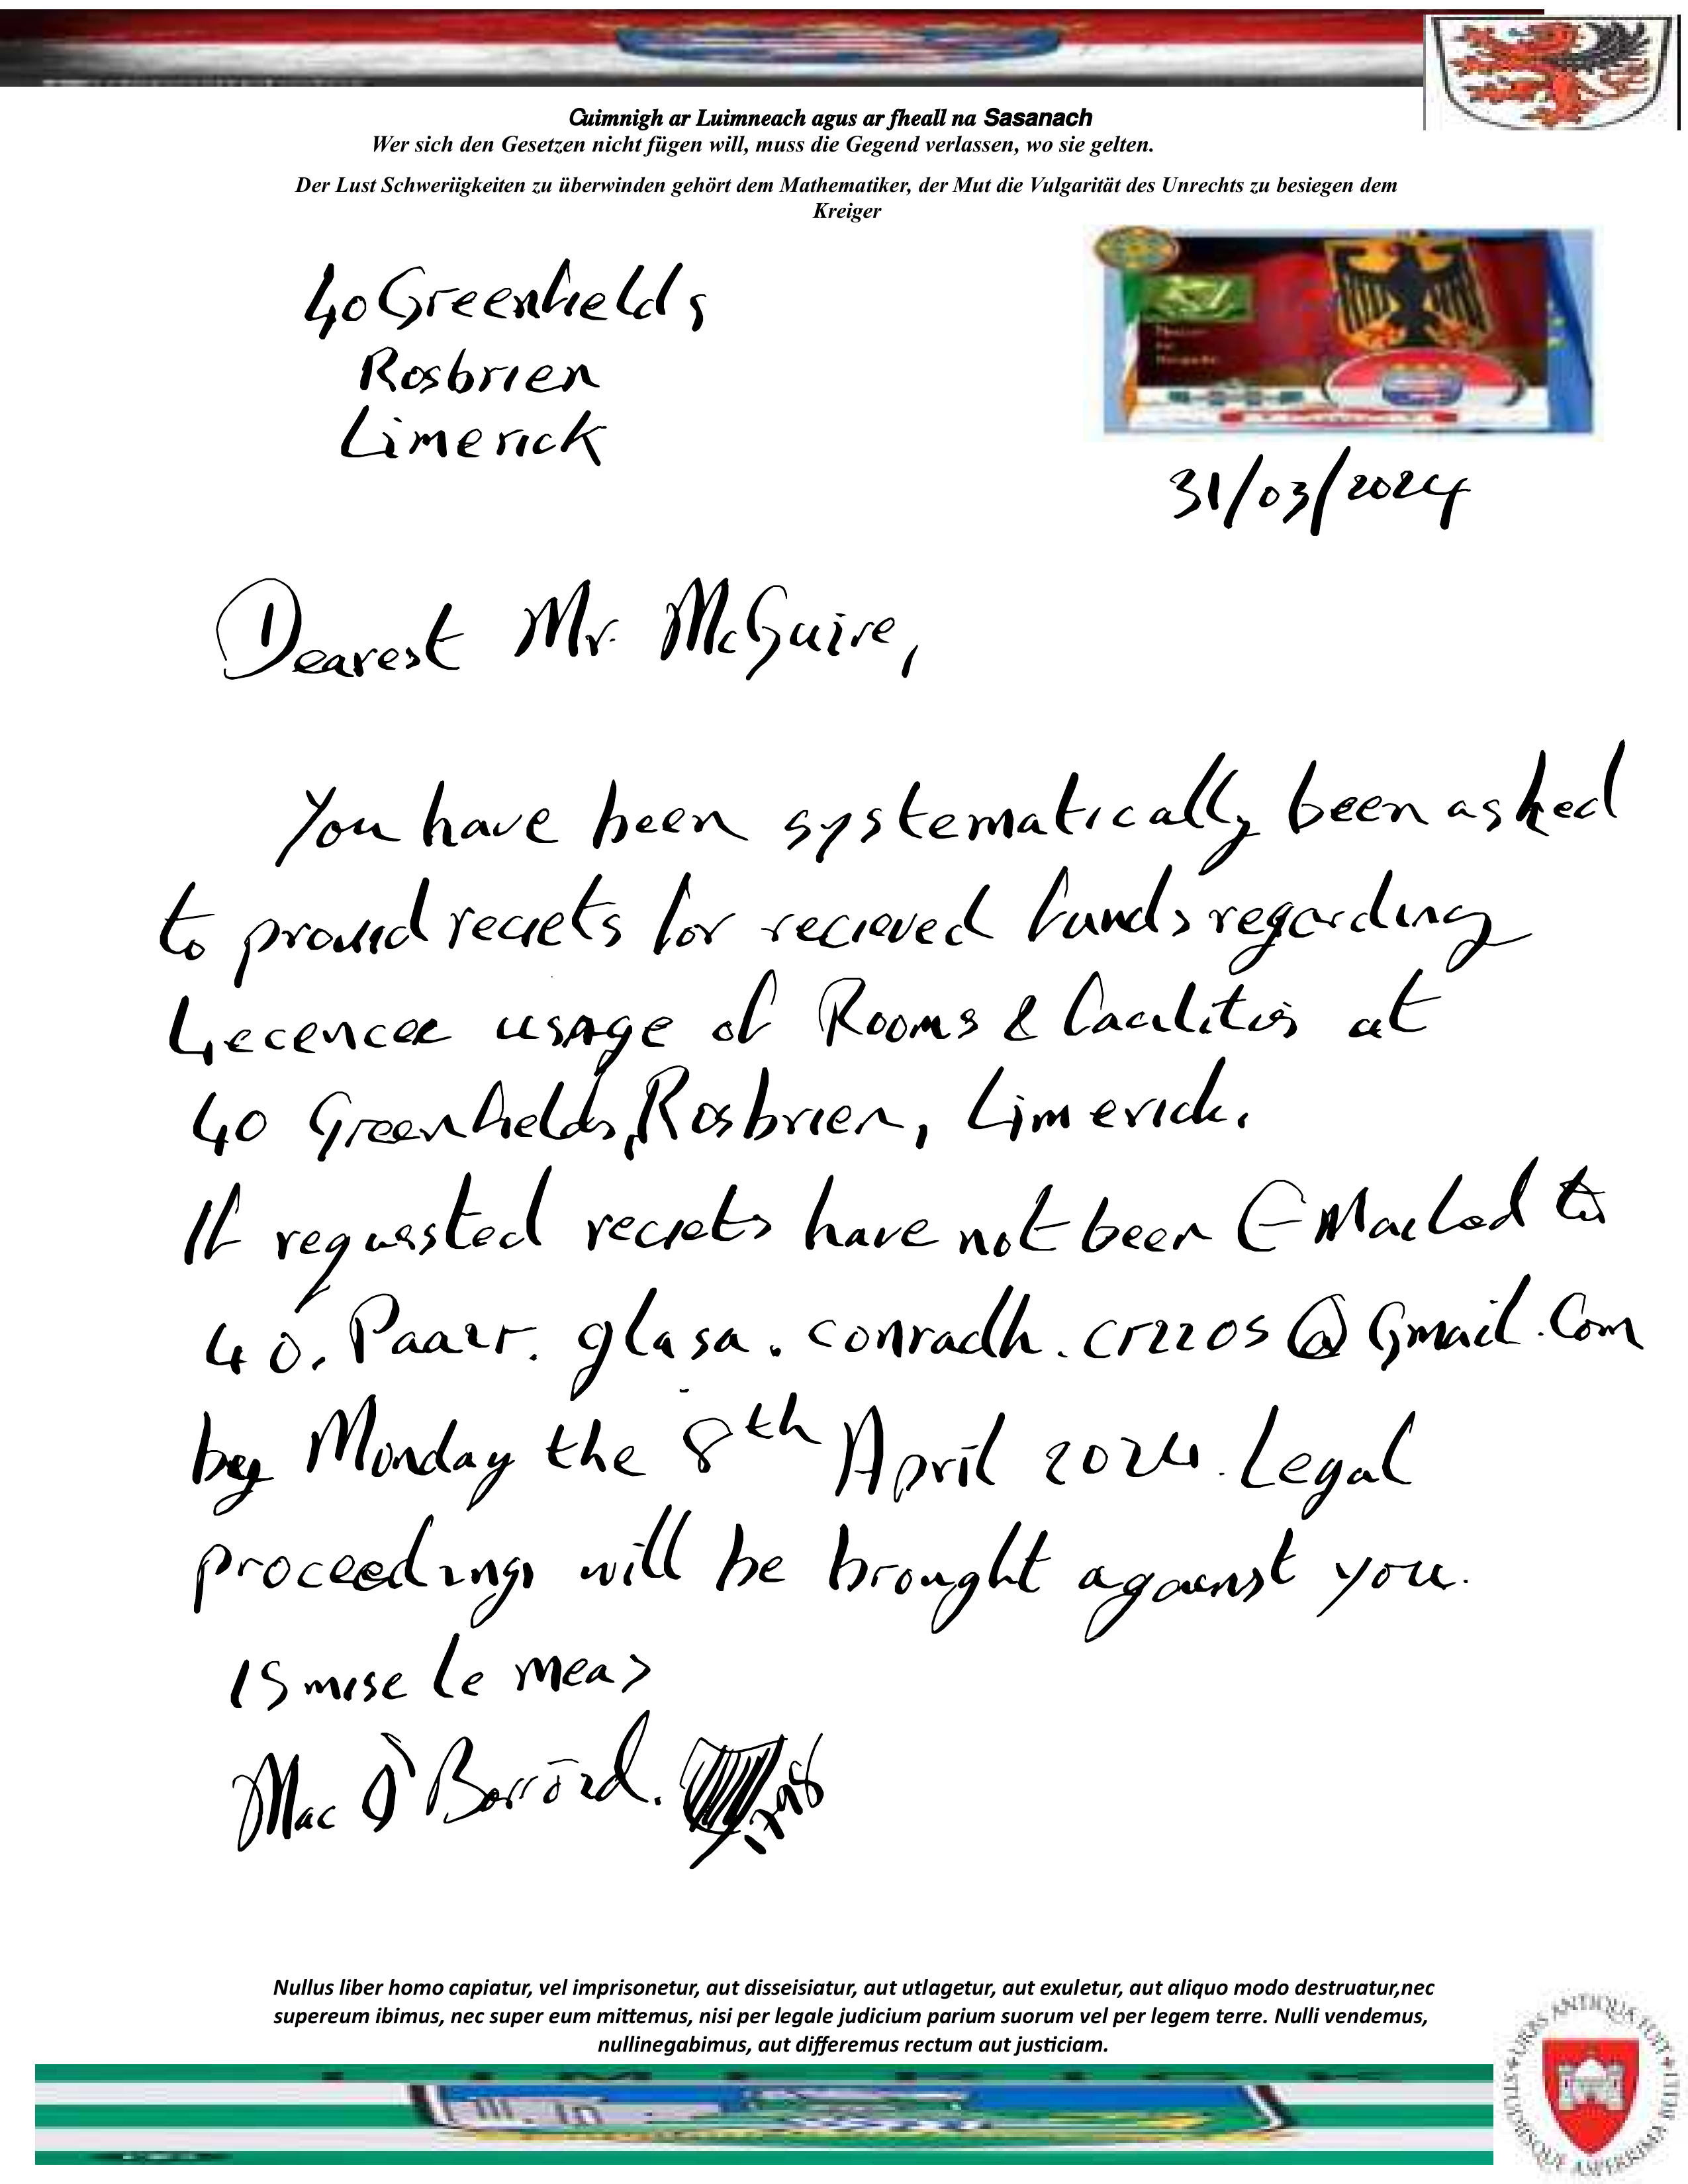 Cuimnigh ar Luimneach agus ar fheall na Sasanach
Wer sich den Gesetzen nicht fügen will, muss die Gegend verlassen, wo sie gelten.
Der Lust Schweriigkeiten zu überwinden gehört dem Mathematiker, der Mut die Vulgarität des Unrechts zu besiegen dem
Kreiger
40 Greenfields
Rosbrien
Limerick
31/03/2024
Dearest Mr. McGuire,
You have been systematically been asked
to provid reciets for recieved funds regarding
usage of Rooms & Facilities at
40 Greenfields, Rosbrien, Limerick.
If requested reciets have not been E-Mailed to
40. Paazr. glasa. conradh. cr2205@Gmail.Com
by Monday the 8th April 2024. Legal
proceedings will be brought against you.
Is mise le meas
Mac Ó
1798
Nullus liber homo capiatur, vel imprisonetur, aut disseisiatur, aut utlagetur, aut exuletur, aut aliquo modo destruatur,nec
supereum ibimus, nec super eum mittemus, nisi per legale judicium parium suorum vel per legem terre. Nulli vendemus,
nullinegabimus, aut differemus rectum aut justiciam.
URBS ANTIQUA FUIT STUDIISQUE ASPERRIMA BELLI